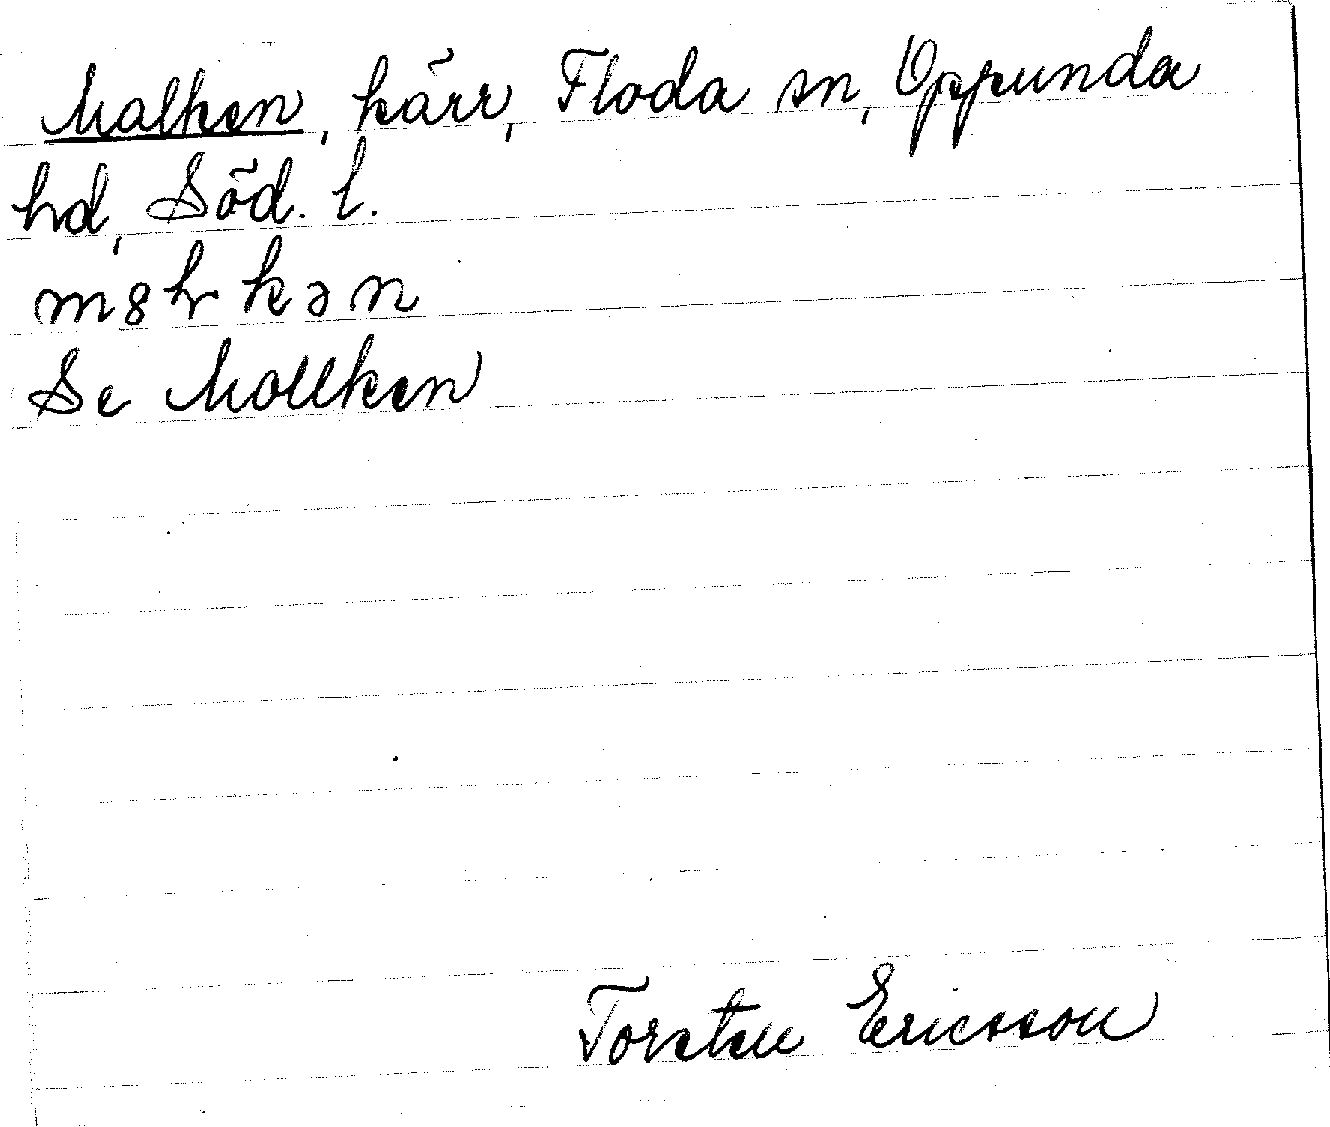 Malken, kärr, Floda sn, Oppunda
hd, Söd. l.
m8lrkən
Se Mollken
Torsten Ericsson